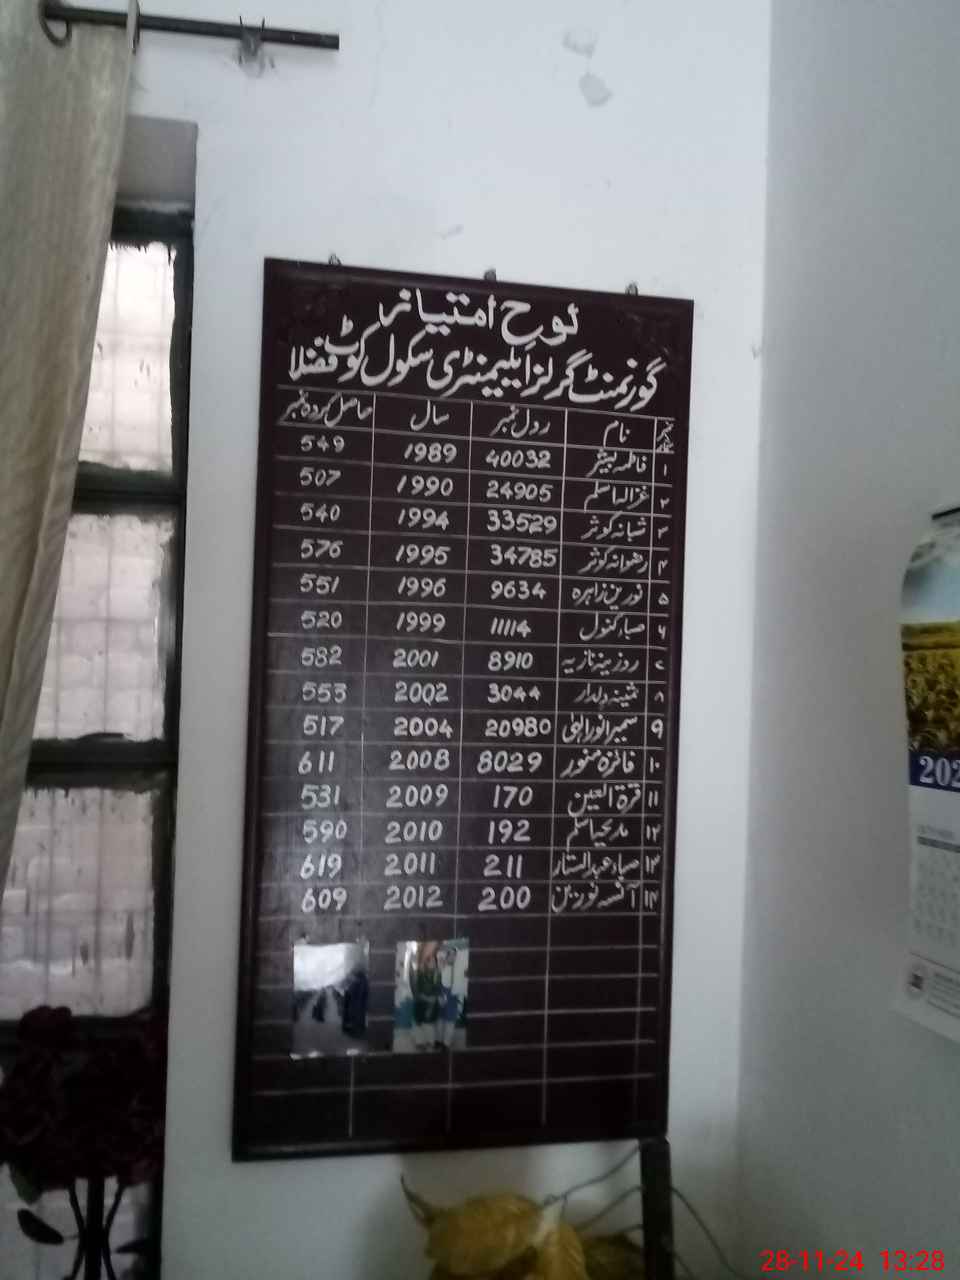 لوح امتیاز
گورنمنٹ گرلز ایلیمنٹری سکول کوٹ فضلا
نمبر شمار نام رول نمبر سال حاصل کردہ نمبر
۱ فاطمہ بشیر 40032 1989 549
۲ غزالہ اسلم 24905 1990 507
۳ شبانہ کوثر 33529 1994 540
۴ رضوانہ کوثر 34785 1995 576
۵ نورین زاہرہ 9634 1996 551
۶ صباء کنول 11114 1999 520
۷ روزینہ نازیہ 8910 2001 582
۸ ثمینہ دلدار 3044 2002 553
۹ سمیرا نور الہی 20980 2004 517
۱۰ فائزہ منور 8029 2008 611
۱۱ قرۃ العین 170 2009 531
۱۲ مدیحہ اسلم 192 2010 590
۱۳ صباء عبدالستار 211 2011 619
۱۴ آنسہ نورین 200 2012 609
202
28-11-24 13:28